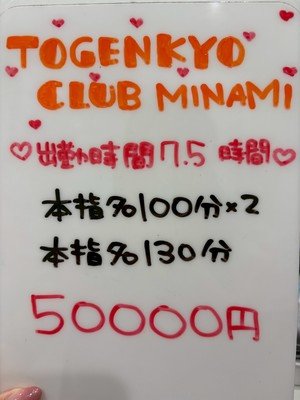 TOGENKYO
CLUB MINAMI
出勤時間7.5時間
本指名100分×2
本指名130分
50000円